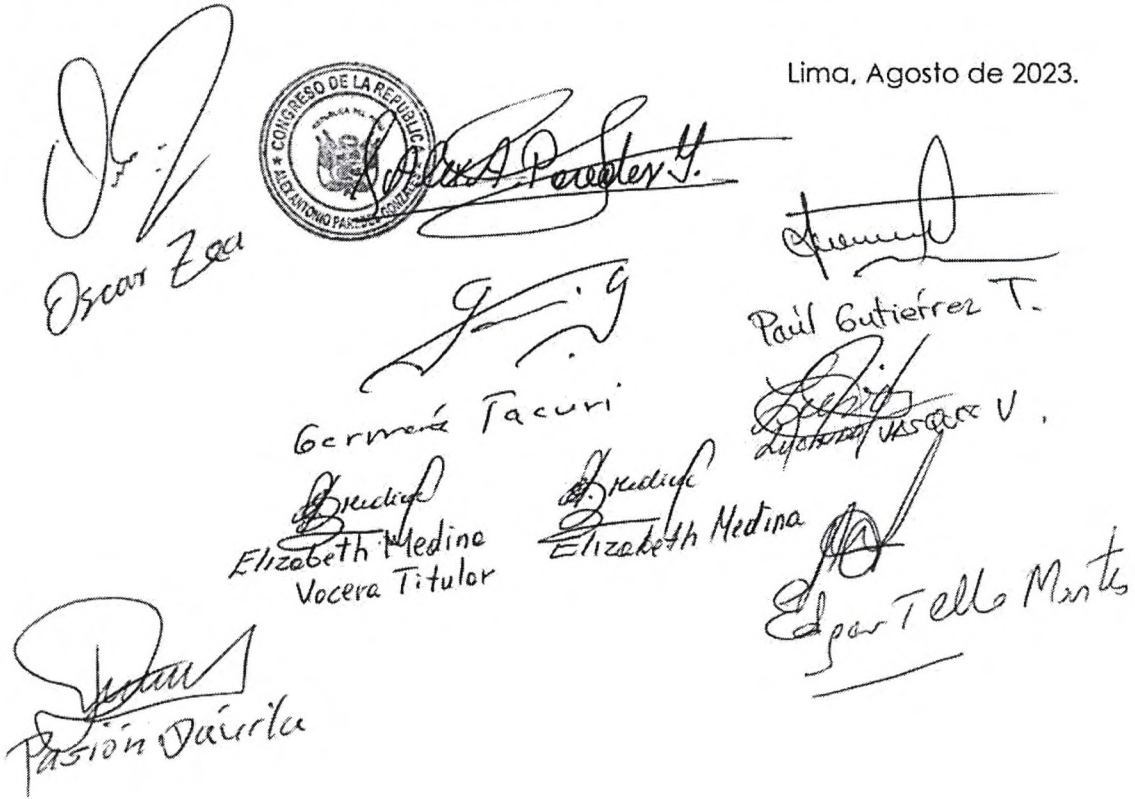 Lima, Agosto de 2023.
CONGRESO DE LA REPÚBLICA
ALEX ANTONIO PAREDES GONZALES
Alex A. Paredes G.
Oscar Zea
Paúl Gutiérrez T.
Germán Tacuri
Vásquez V.
Medina
Elizabeth Medina
Vocera Titular
Medina
Elizabeth Medina
Edgar Tello Montes
Pasión Dávila